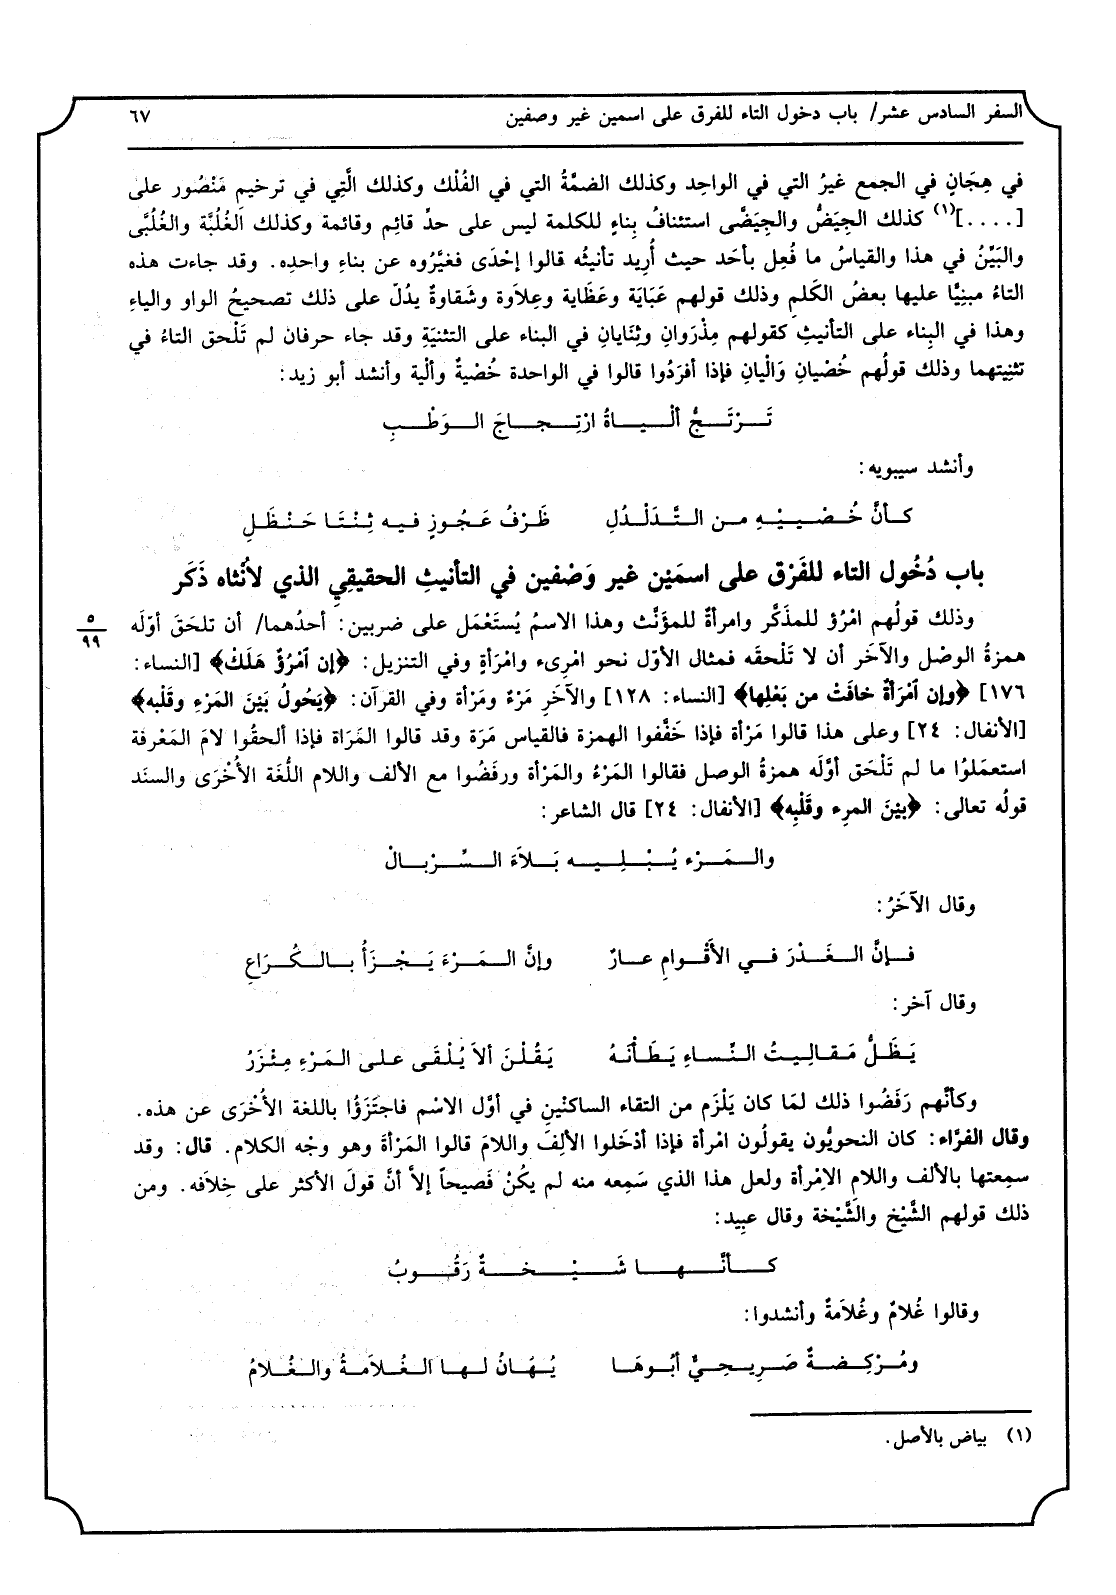 السفر السادس عشر/ باب دخول التاء للفرق على اسمين غير وصفين ٦٧
في هِجَانٍ في الجمع غيرُ التي في الواحِد وكذلك الضمَّةُ التي في الفُلْك وكذلك الَّتِي في ترخيم مَنْصُور على
[....](١) كذلك الجِيَضُّ والجِيَضَّى استئنافُ بِناءٍ للكلمة ليس على حدِّ قائِم وقائمة وكذلك الغُلُبَّة والغُلُبَّى
والبَيِّنُ في هذا والقياسُ ما فُعِل بأحَد حيث أُرِيد تأنيثُه قالوا إحْدَى فغيَّرُوه عن بناءِ واحدِه. وقد جاءت هذه
التاءُ مبنِيًّا عليها بعضُ الكَلمِ وذلك قولهم عَبَايَة وعَظَاية وعِلاَوة وشَقاوةٌ يدُلّ على ذلك تصحيحُ الواو والياءِ
وهذا في البِناء على التأنيثِ كقولهم مِذْرَوان وثِنَايانِ في البناء على التثنيَةِ وقد جاء حرفان لم تَلْحق التاءُ في
تثنِيتهما وذلك قولُهم خُصْيانِ وَالْيانِ فإذا أفرَدُوا قالوا في الواحدة خُصْيةٌ وألْية وأنشد أبو زيد:
تَـرْتَـجُّ ألْـيـاهُ ارْتِـجـاجَ الـوَطْـبِ
وأنشد سيبويه:
كـأنَّ خُـصْـيـيْـهِ مـن التَّـدَلْـدُلِ ظَرْفُ عَجُوزٍ فيه ثِنْتَا حَنْظَلِ
باب دُخُول التاء للفَرْق على اسمَيْن غير وَصْفين في التأنيثِ الحقيقيِ الذي لأُنْثاه ذَكَر
وذلك قولُهم امْرُؤ للمذكَّر وامرأةٌ للمؤنَّث وهذا الاسمُ يُستَعْمَل على ضربين: أحدُهما/ أن تلحَقَ أوّلَه
٥
٩٩
همزةُ الوصْل والآخَر أن لا تَلْحقَه فمثال الأوّل نحو امْرِىء وامْرَأةٍ وفي التنزيل: ﴿إن ٱمْرُؤٌ هَلَكَ﴾ [النساء:
١٧٦] ﴿وإن ٱمْرَأةٌ خافَتْ من بَعْلِها﴾ [النساء: ١٢٨] والآخَرِ مَرْءٌ ومَرْأة وفي القرآن: ﴿يَحُولُ بَيْنَ المَرْءِ وقَلْبه﴾
[الأنفال: ٢٤] وعلى هذا قالوا مَرْأة فإذا خَفَّفوا الهمزة فالقياس مَرَة وقد قالوا المَرَاة فإذا ألحقُوا لامَ المَعْرفة
استعمَلوُا ما لم تَلْحَق أوَّلَه همزةُ الوصل فقالوا المَرْءُ والمَرْأة ورفَضُوا مع الألف واللام اللُّغة الأُخْرَى والسنَد
قولُه تعالى: ﴿بيْنَ المرِء وقَلْبِه﴾ [الأنفال: ٢٤] قال الشاعر:
والـمَـرْء يُـبْـلِـيـه بَـلاَءَ الـسِّرْبـالْ
وقال الآخَرُ:
فـإنَّ الـغَـدْرَ فـي الأقْـوامِ عـارٌ وإنَّ الـمَـرْءَ يَـجْـزَأُ بـالـكُـرَاعِ
وقال آخر:
يَـظَـلُّ مَـقـالِيـتُ النِّسـاءِ يَـطَـأْنَـهُ يَـقُـلْـنَ ألاَ يُـلْقَـى علـى المَـرْءِ مِـئْـزَرُ
وكأنَّهم رَفَضُوا ذلك لمَا كان يَلْزَم من التقاء الساكنْينِ في أوَّل الاسْم فاجتَزَؤُا باللغة الأُخْرَى عن هذه.
وقال الفرَّاء: كان النحويُّون يقولُون امْرأة فإذا أدْخَلوا الألِفَ واللامَ قالوا المَرْأةَ وهو وجْه الكلام. قال: وقد
سمِعتها بالألف واللام الاِمْرأة ولعل هذا الذي سَمِعه منه لم يكُنْ فَصيحاً إلاَّ أنَّ قولَ الأكثر على خِلاَفه. ومن
ذلك قولهم الشَّيْخ والشَّيْخة وقال عبِيد:
كـأنَّـهـا شَـيْـخـةٌ رَقُـوبُ
وقالوا غُلامٌ وغُلاَمةٌ وأنشدوا:
ومُـرْكِـضـةٌ صَـرِيـحِـيٌّ أبُـوهَـا يُـهَـانُ لـهـا الـغُـلاَمـةُ والـغُـلامُ
(١) بياض بالأصل.